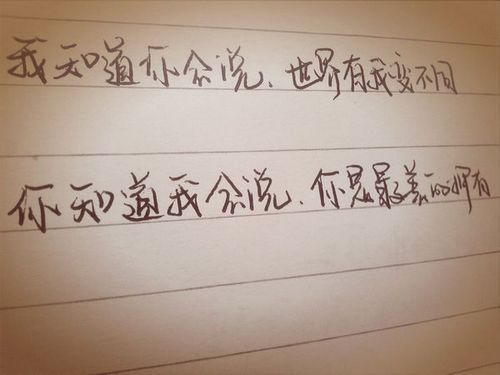 我知道你会说．世界有我变不同
你知道我会说．你是最美的拥有